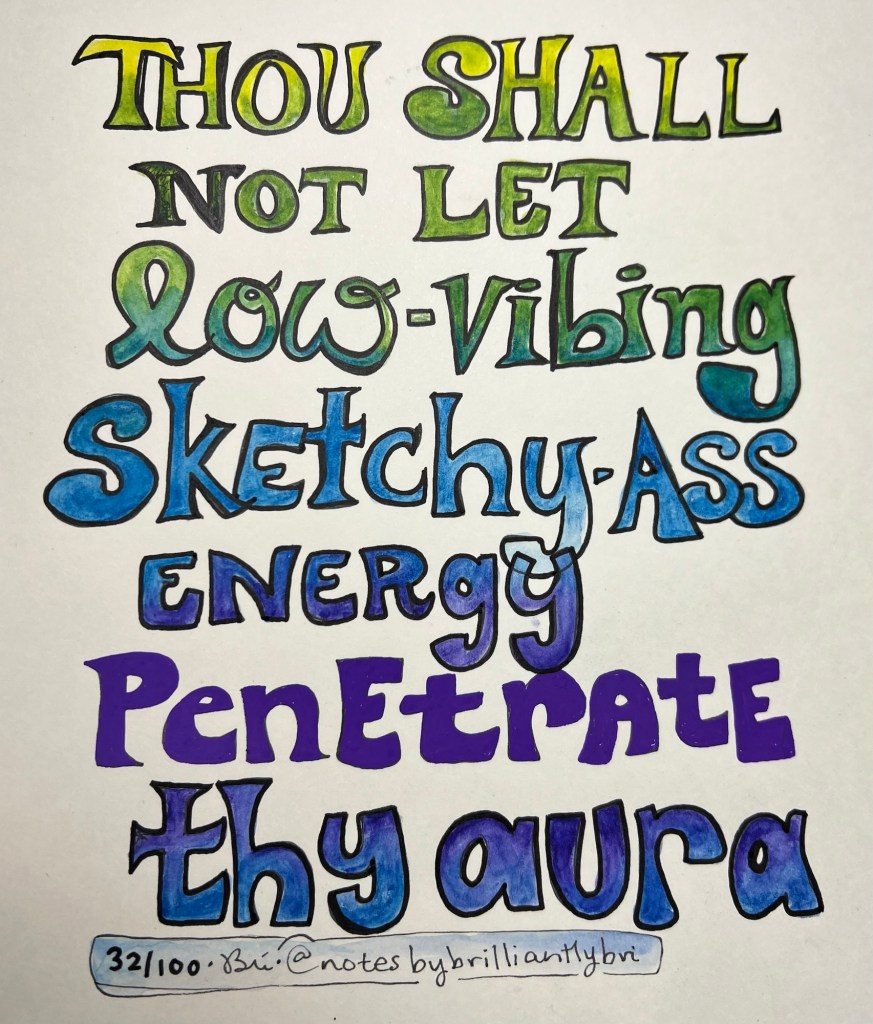 THOU SHALL
NOT LET
low-vibing
SKEtchy-ASS
ENERgy
PenEtrAtE
thy aura
32/100 · Bri · @notesbybrilliantlybri